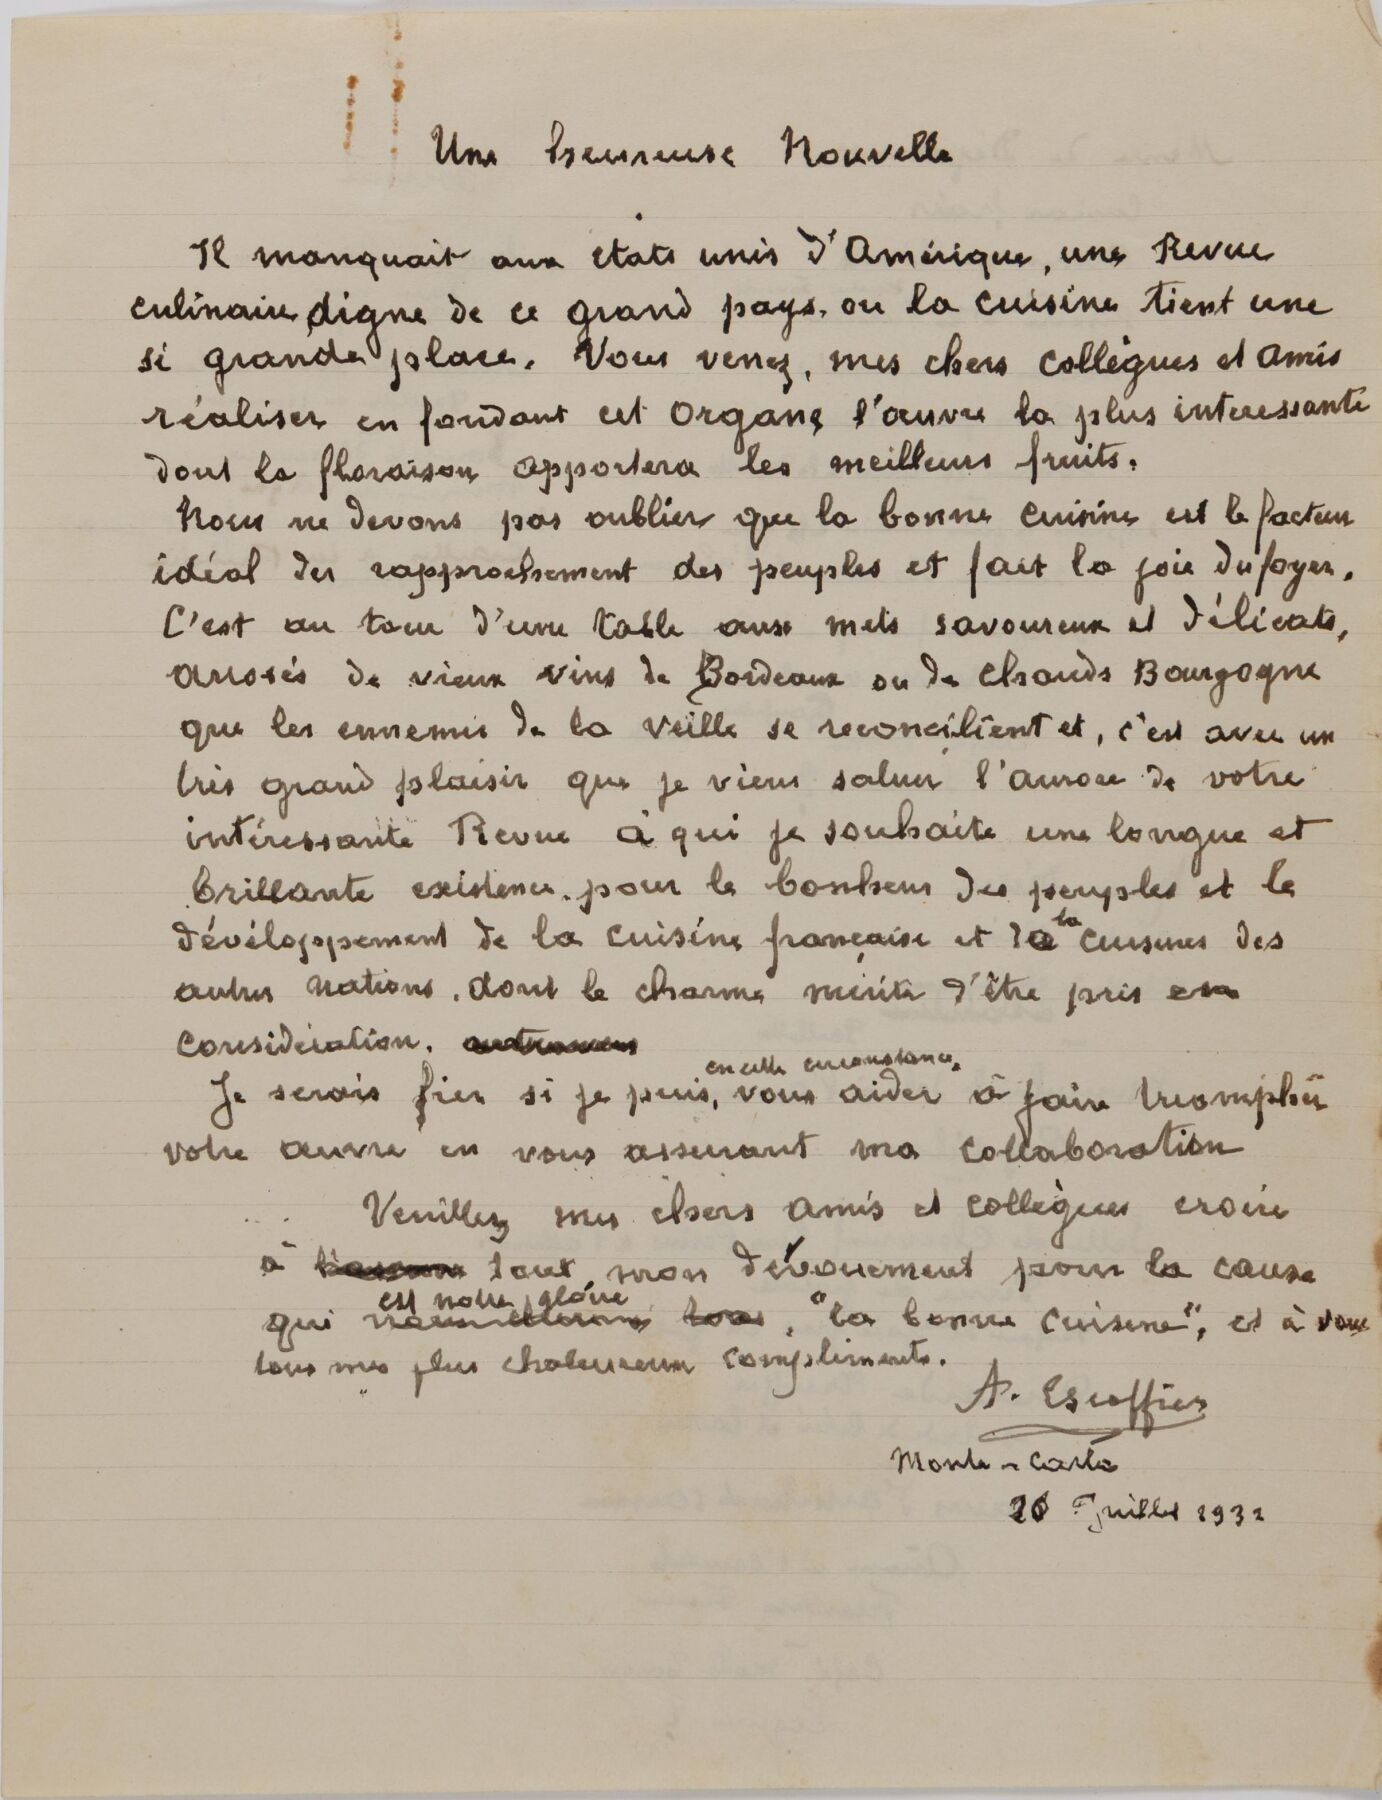 Une heureuse Nouvelle
Il manquait aux états unis d'Amérique, une Revue
culinaire digne de ce grand pays, ou la cuisine tient une
si grande place. Vous venez, mes chers collègues et amis
réaliser en fondant cet Organe l'œuvre la plus interessante
dont la floraison apportera les meilleurs fruits.
Nous ne devons pas oublier que la bonne cuisine est le facteur
idéal des rapprochement des peuples et fait la joie du foyer.
C'est au tour d'une table aux mets savoureux et délicats,
arrosés de vieux vins de Bordeaux ou de chauds Bourgogne
que les ennemis de la veille se reconcilient et, c'est avec un
très grand plaisir que je viens saluer l'aurore de votre
intéressante Revue à qui je souhaite une longue et
brillante existence. pour le bonheur des peuples et le
dévéloppement de la cuisine française et la cuisines des
autres nations, dont le charme mérite d'être pris en
considération.
en cette circonstance,
Je serais fier si je puis, vous aider à faire triompher
votre œuvre en vous assurant ma collaboration
Veuillez mes chers amis et collègues croire
à tout mon dévouement pour la cause
est notre gloire
qui , "la bonne cuisine", et à vous
tous mes plus chaleureux compliments.
A. Escoffier
Monte-Carlo
26 Juillet 1932